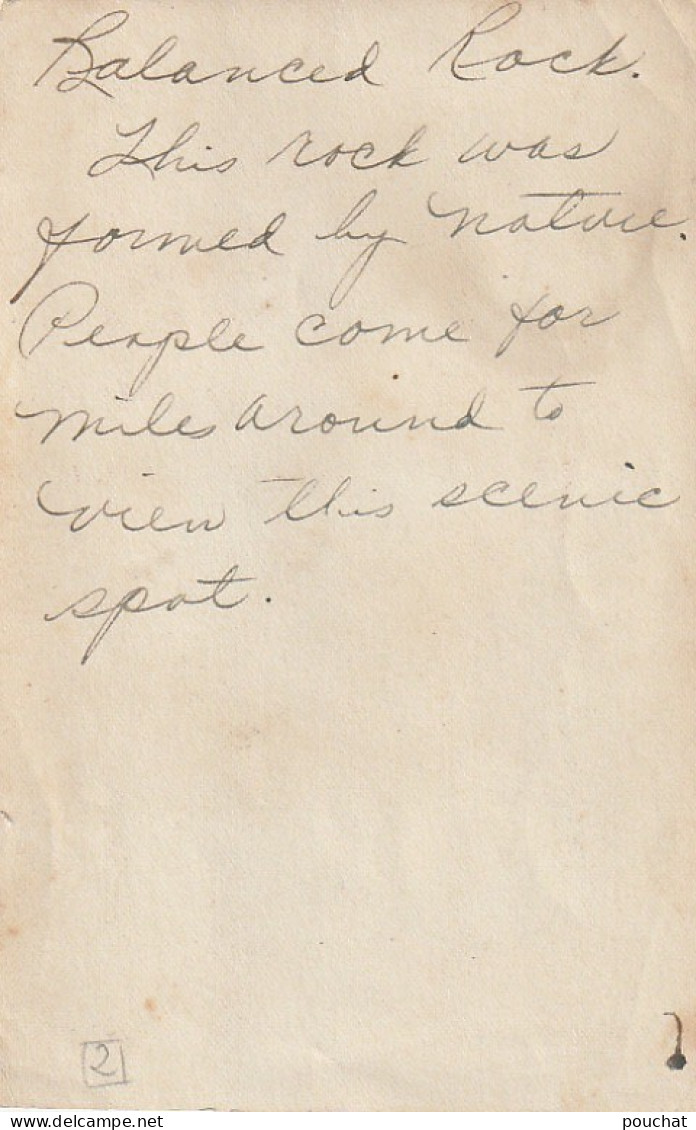 Balanced Rock.
This rock was
formed by nature.
People come for
miles around to
view this scenic
spot.
2
www.delcampe.net
pouchat